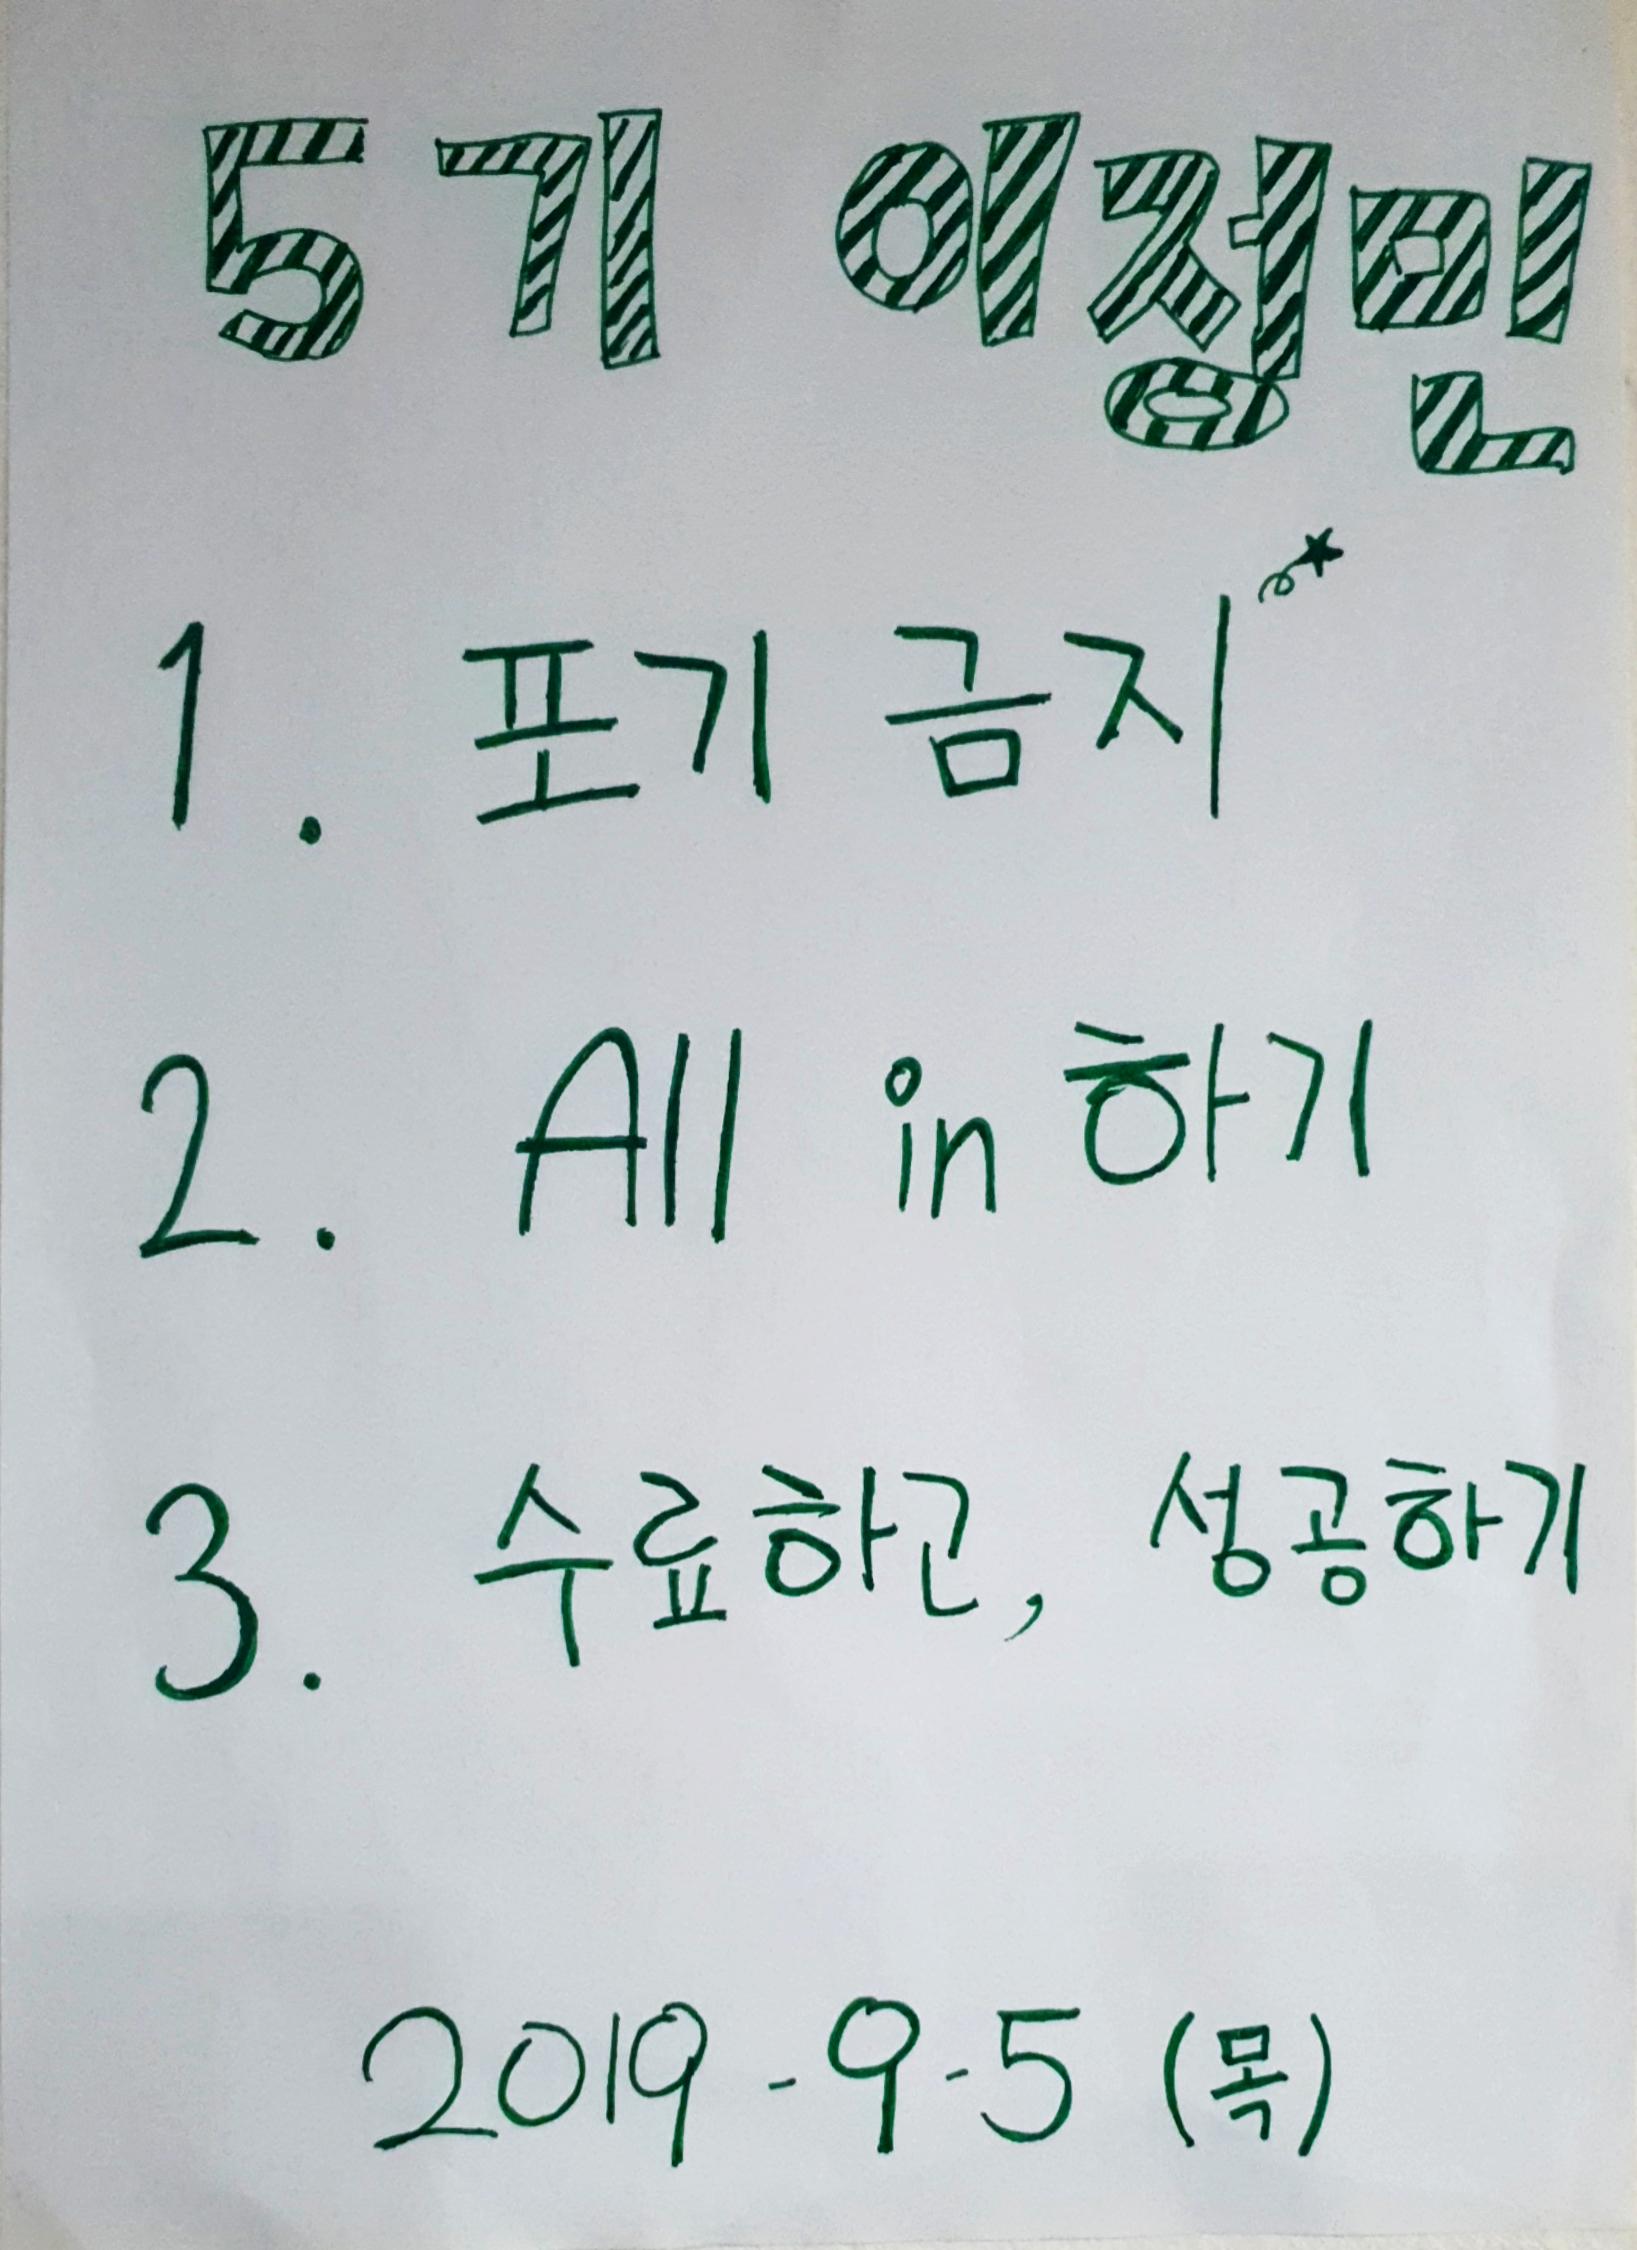 5기 이정민
1. 포기 금지
2. All in 하기
3. 수료하고, 성공하기
2019-9-5 (목)